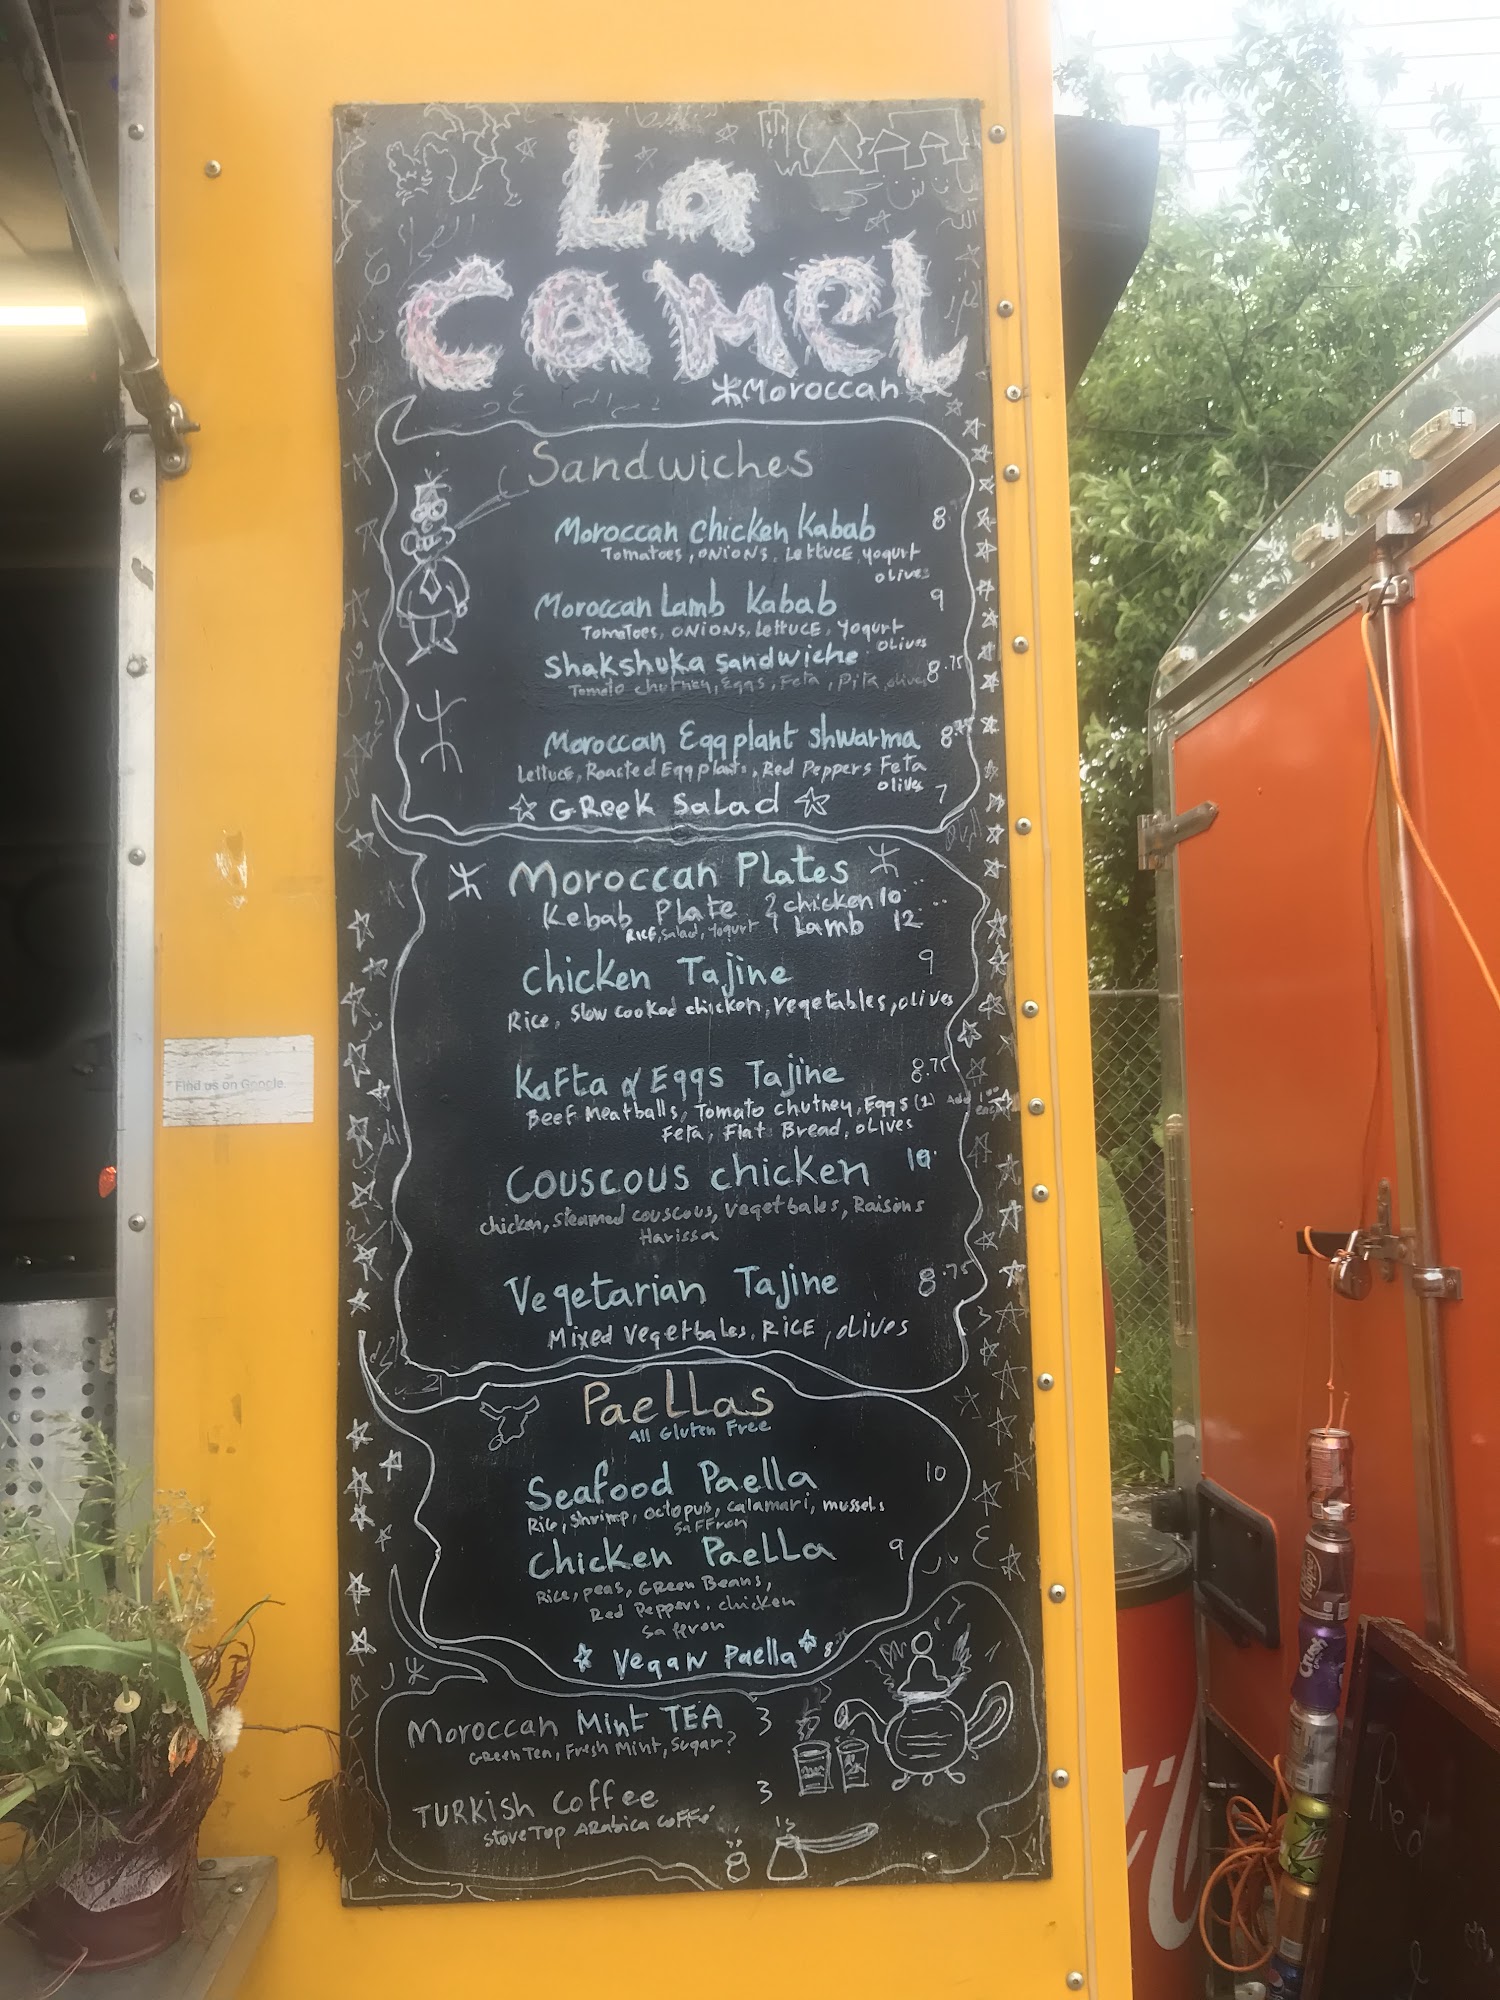 La
camel
Moroccan
Sandwiches
Moroccan chicken Kabab 8
Tomatoes, ONIONS, Lettuce, yogurt
olives
Moroccan Lamb Kabab 9
Tomatoes, ONIONS, Lettuce, Yogurt
olives
Shakshuka sandwiche 8.75
Tomato chutney, Eggs, Feta, Pita, olives
Moroccan Eggplant shwarma 8.75
Lettuce, Roasted Eggplants, Red Peppers Feta
olives
GReek Salad 7
Moroccan Plates
Kebab Plate chicken 10
RICE, Salad, yogurt Lamb 12
chicken Tajine 9
Rice, Slow cooked chicken, vegetables, olives
Kafta & Eggs Tajine 8.75
Beef Meatballs, Tomato chutney, Eggs (1) Add 1.00 each
Feta, Flat Bread, olives
Couscous chicken 10
chicken, steamed couscous, vegetbales, Raisins
Harissa
Vegetarian Tajine 8.75
Mixed vegetbales, RICE, olives
Paellas
All Gluten Free
Seafood Paella 10
Rice, shrimp, octopus, calamari, mussels
Saffron
chicken Paella 9
Rice, peas, GReen Beans,
Red Peppers, chicken
Saffron
Vegan Paella 8.75
Moroccan Mint TEA 3
GReen Tea, Fresh Mint, Sugar?
TURKISH Coffee 3
stove Top ARabica coffé
Find us on Google
Crush